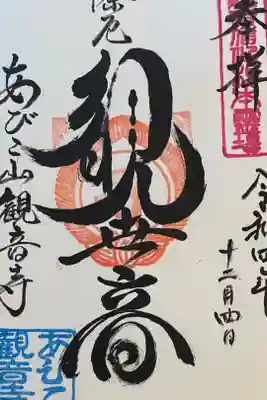 奉拝
令和四年
十二月四日
除厄
観世音
あびこ山観音寺
あびこ
観音寺